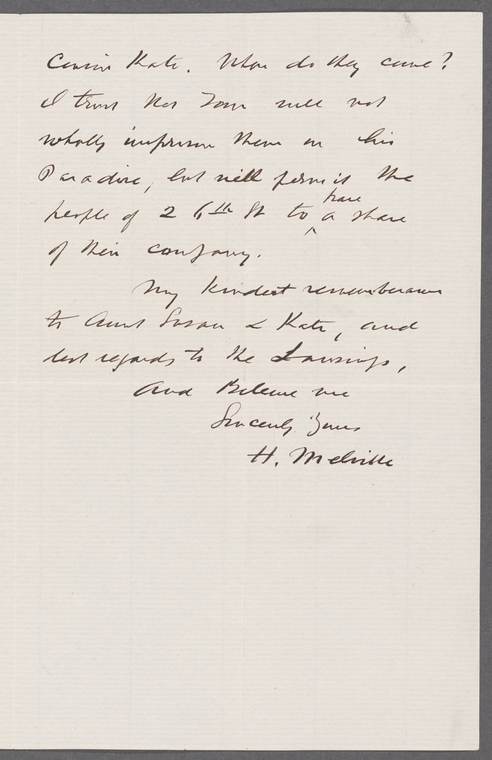 Cousin Kate. When do they come?
I trust that Tom will not
wholly imprison them in his
Paradise, but will permit the
people of 26th St to ^have a share
of their company.
My kindest remembrances
to Aunt Susan & Kate, and
best regards to the Lansings,
And Believe me
Sincerely Yours
H. Melville